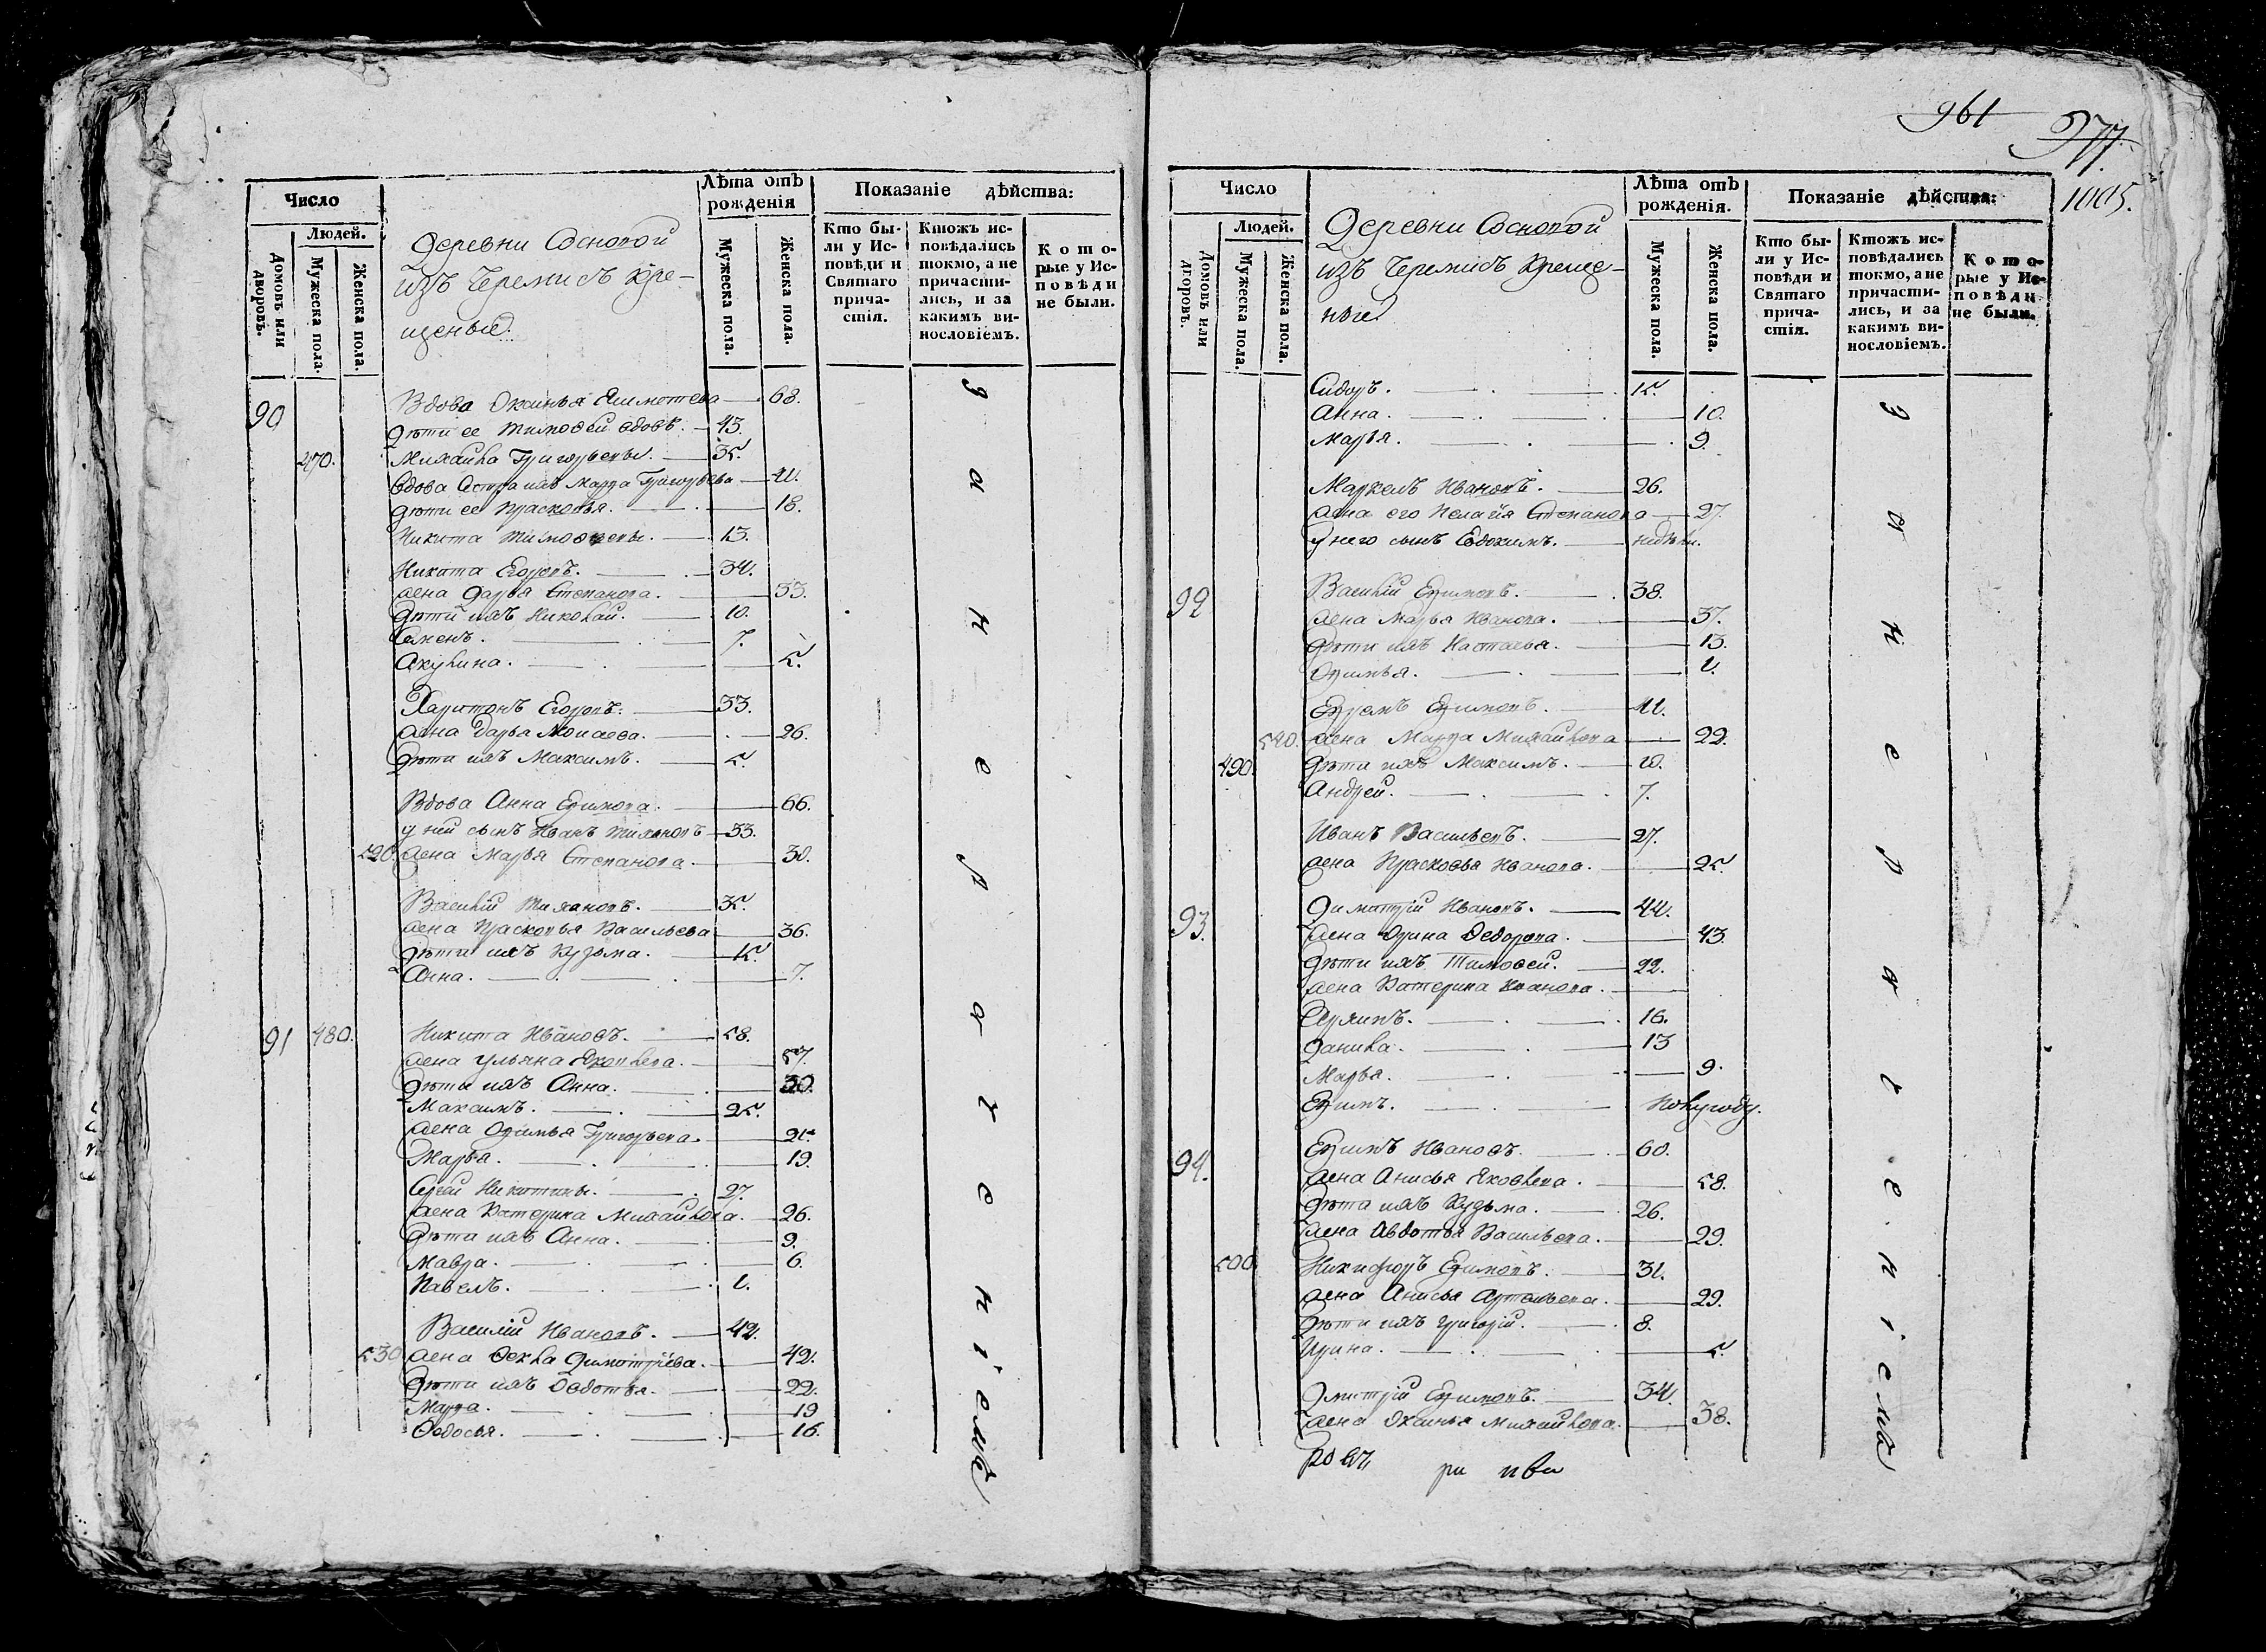 961
977.
1005.
Число
Людей.
Домовъ или дворовъ.
Мужеска пола.
Женска пола.
Деревни Сосновой
изъ Черемисъ кре-
щеные
Лѣта отъ рожденія
Мужеска пола.
Женска пола.
Показаніе дѣйства:
Кто бы-
ли у Ис-
повѣди и
Святаго
прича-
стія.
Ктожъ ис-
повѣдались
токмо, а не
причасти-
лись, и за
какимъ ви-
нословіемъ.
Кото-
рые у Ис-
повѣди
не были.
90 Вдова Оксинья 68.
дѣти ее Тимофей вдовъ. 43.
470. Михаила Григорьевы. 35.
вдова сестра ихъ Марфа Григорьева 41.
дѣти ее Прасковья. 18.
Никита Тимофеевы. 13.
Никита Егоровъ. 34.
жена Дарья Степанова. 33.
дѣти ихъ Николай. 10.
Семенъ. 7.
Акулина. 5.
Харитонъ Егоровъ. 33.
жена Дарья Моисеева. 26.
дѣти ихъ Максимъ. 5.
Вдова Анна Ефимова. 66.
у ней сынъ Иванъ Тихановъ 33.
520. жена Марья Степанова. 30.
Василий Тихановъ. 35.
жена Прасковья Васильева 36.
дѣти ихъ Кузьма. 15.
Анна. 7.
91 480. Никита Ивановъ. 58.
жена Ульяна Яковлева. 57.
дѣти ихъ Анна. 30.
Максимъ. 25.
жена Офимья Григорьева. 21.
Марья. 19.
Сергей Никитины. 27.
жена Катерина Михайлова. 26.
дѣти ихъ Анна. 9.
Мавра. 6.
Павелъ. 1.
Василий Ивановъ. 42.
530 жена Фекла Димитріева. 42.
дѣти ихъ Овдотья. 22.
Марфа. 19
Федосья. 16.
задальнеръ
Число
Людей.
Домовъ или дворовъ.
Мужеска пола.
Женска пола.
Деревни Сосновой
изъ Черемисъ креще-
ные
Лѣта отъ рожденія.
Мужеска пола.
Женска пола.
Показаніе дѣйства:
Кто бы-
ли у Ис-
повѣди и
Святаго
прича-
стія.
Ктожъ ис-
повѣдались
токмо, а не
причасти-
лись, и за
какимъ ви-
нословіемъ.
Кото-
рые у Ис-
повѣди
не были.
Сидоръ. 15.
Анна. 10.
Марья. 9.
Маркелъ Ивановъ. 26.
жена его Пелагія Степанова 27.
у него сынъ Евдокимъ. недѣли.
92 Василій Ефимовъ. 38.
жена Марья Иванова. 37.
дѣти ихъ Настасья. 13.
Офимья. 1.
Ефремъ Ефимовъ. 41.
540. жена Марфа Михайлова 22.
490. дѣти ихъ Максимъ. 10.
Андрей. 7.
Иванъ Васильевъ. 27.
жена Прасковья Иванова. 25
93. Димитрій Ивановъ. 44.
жена Орина Федорова. 43.
дѣти ихъ Тимофей. 22.
жена Катерина Иванова.
16.
Данила. 13
Марья. 9.
Ефимъ. полугоду.
94. Ефимъ Ивановъ. 60.
жена Анисья Яковлева. 58.
дѣти ихъ Кузьма. 26.
жена Авдотья Васильева. 29.
500 Никифоръ Ефимовъ. 31.
жена Анисья Артемьева. 29.
дѣти ихъ Григорій. 8.
Ирина. 5.
Дмитрій Ефимовъ. 34.
жена Оксинья Михайлова. 38.